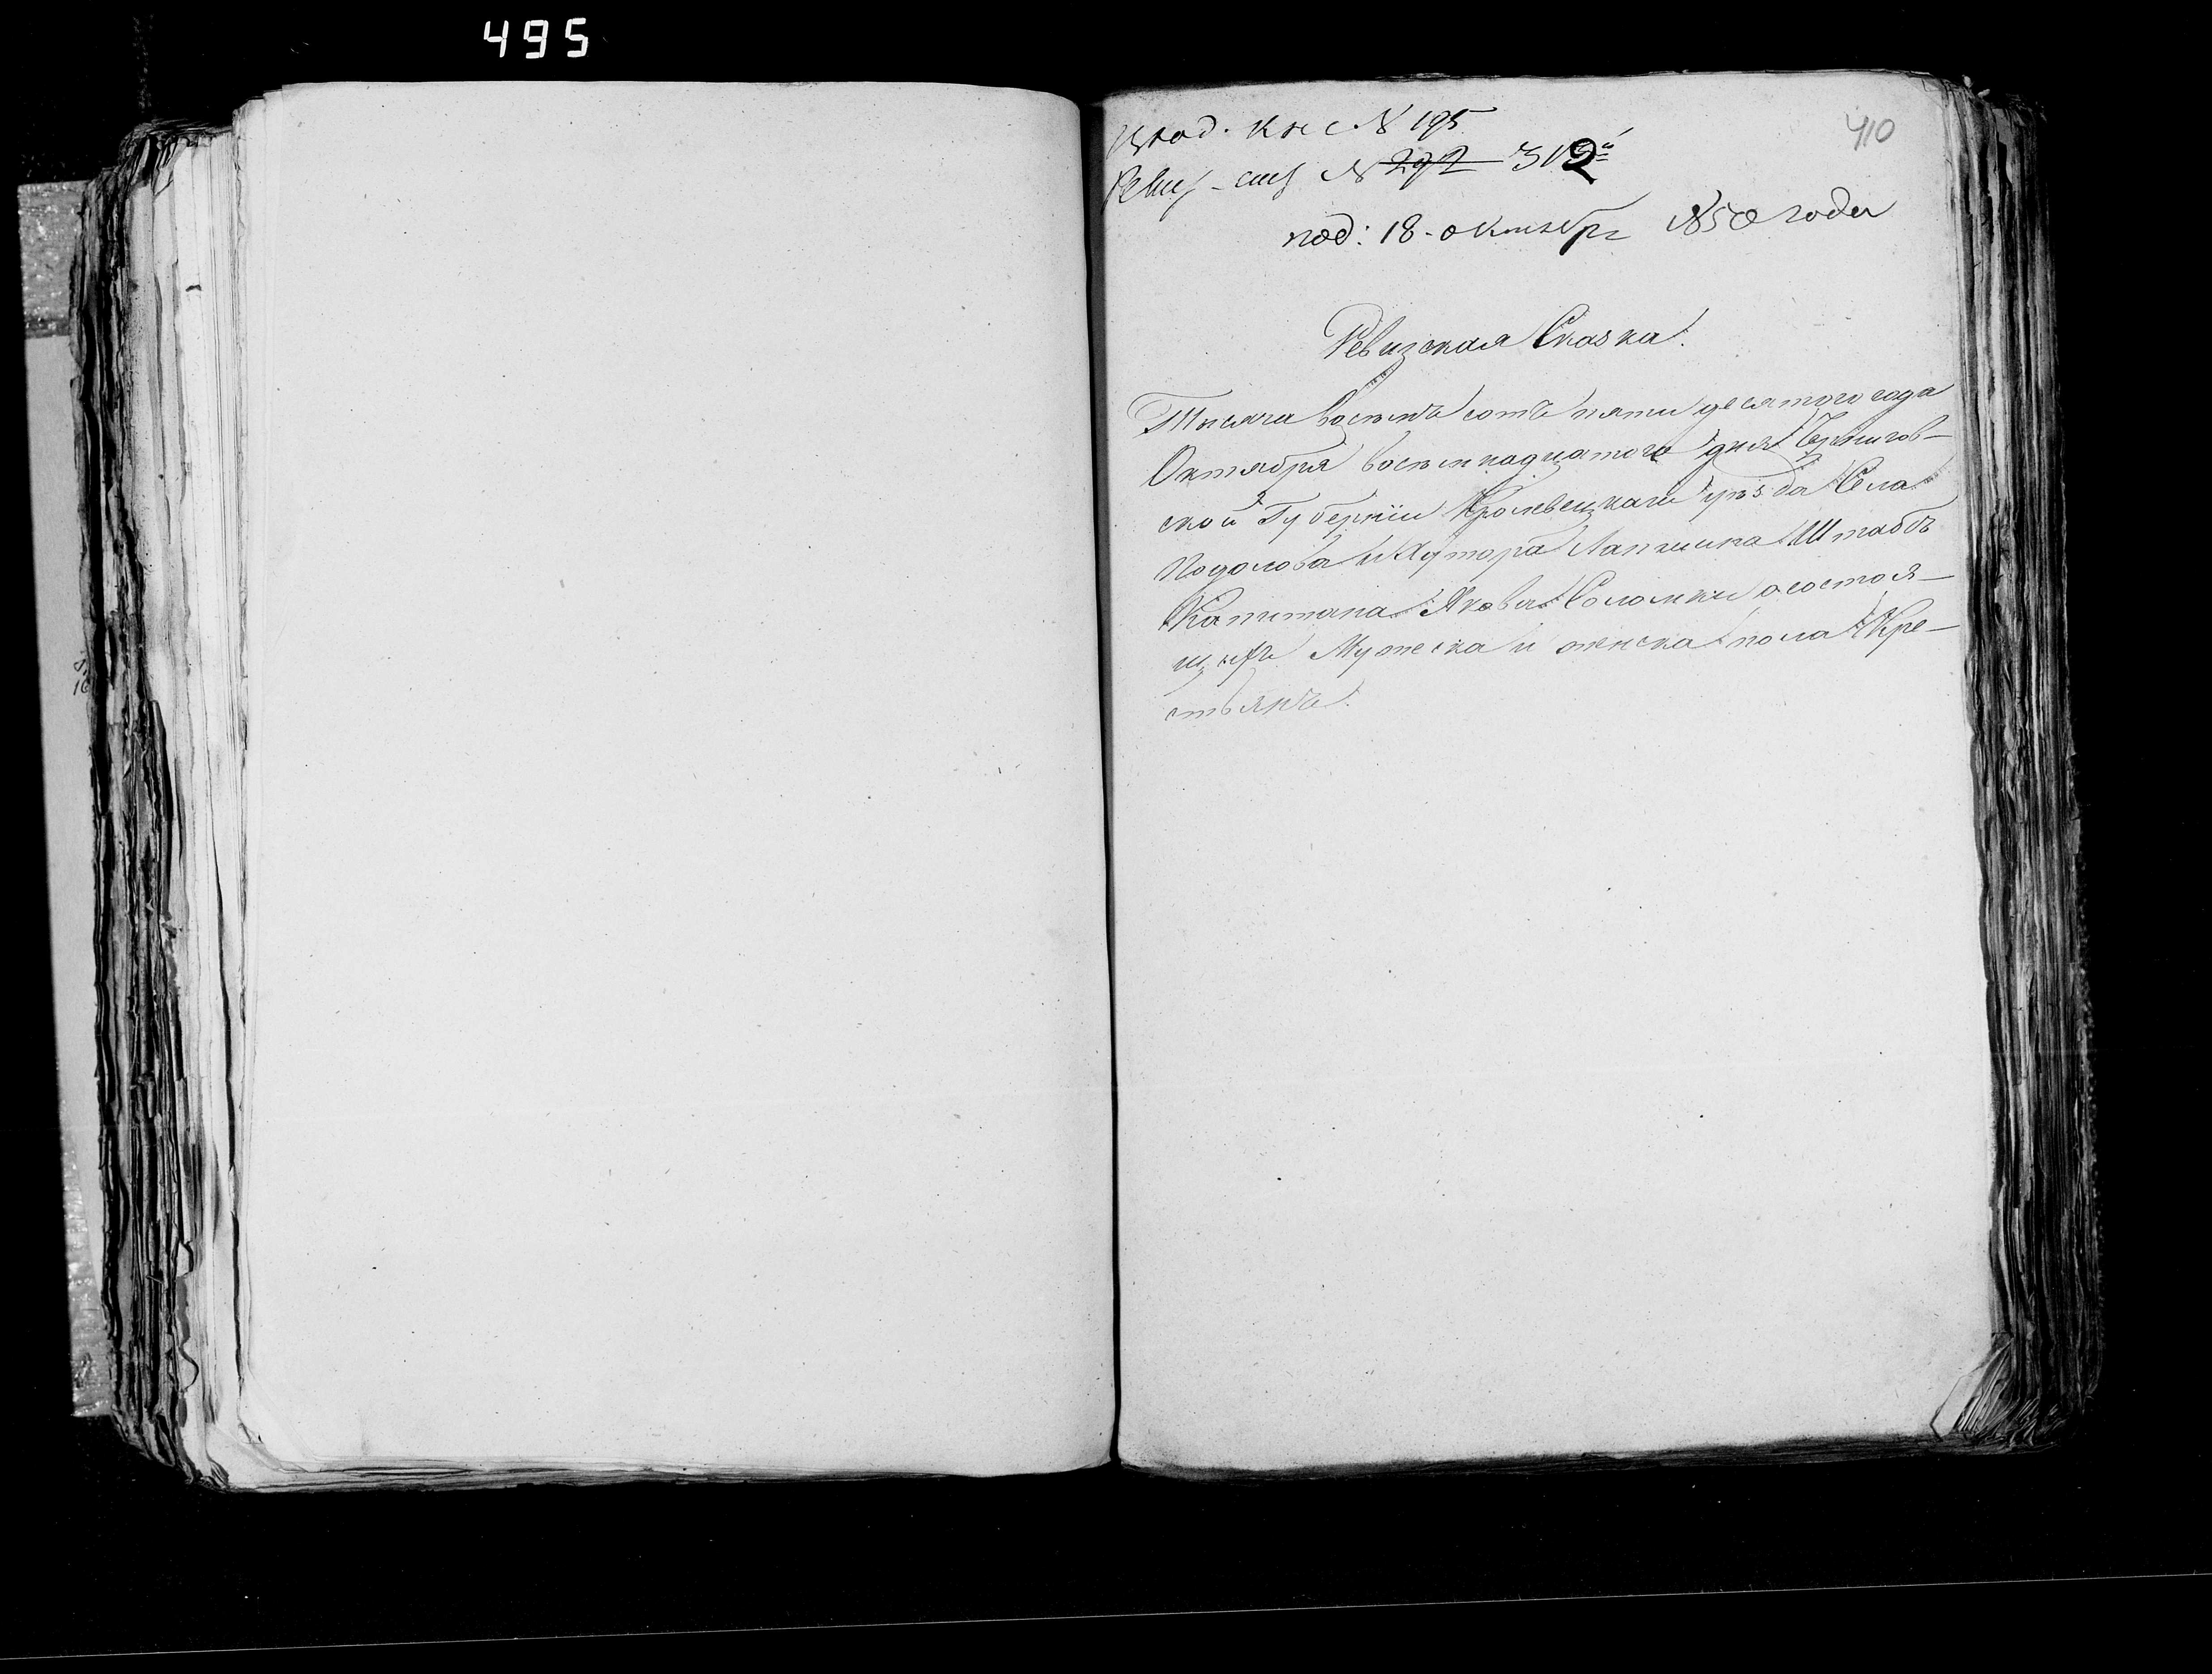 495
410
вход. кн с. № 195
Ревиз. - № 292 312й
под: 18. октября 1850 года
Ревизская Сказка.
Тысяча восемь сотъ пяти десятого года
Октября восемнадцатого дня Чернигов-
ской Губерніи Кролевецкаго уѣзда Села
Подолова и Хутора Лапшина Штабъ
Капитана Якова Соломки о состоя-
щихъ Мужеска и женска пола Кре-
стьянъ.